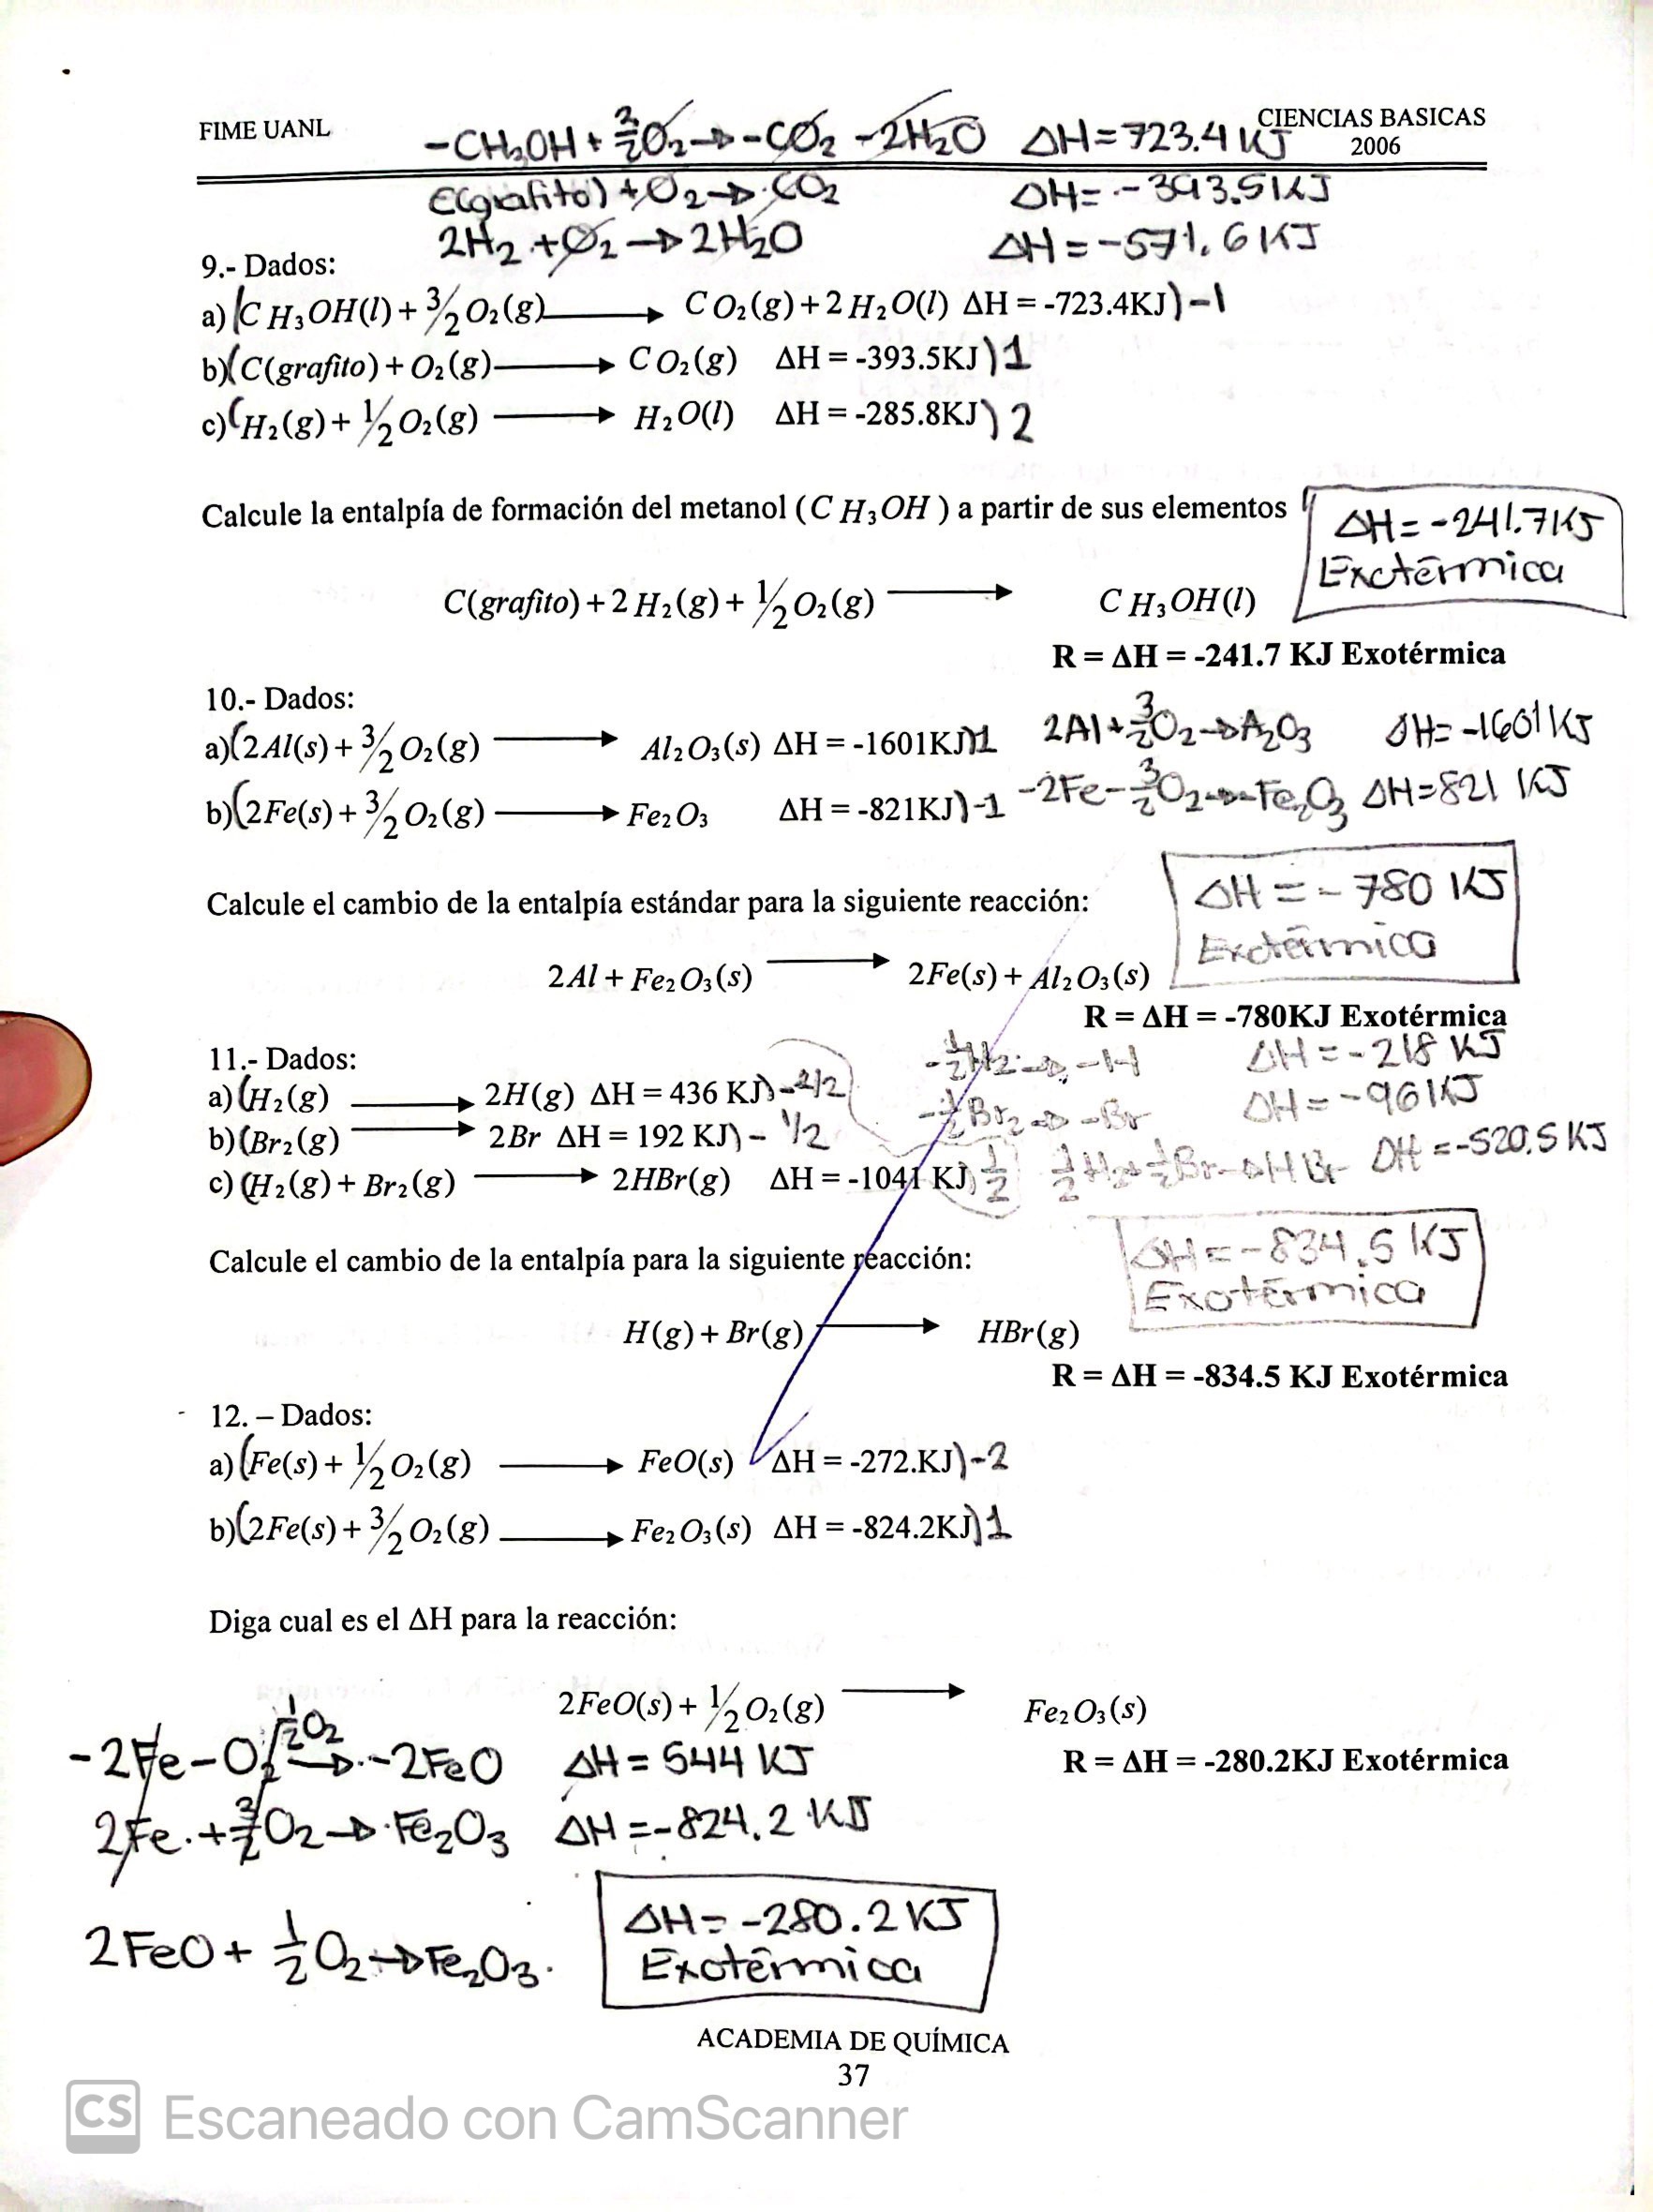 FIME UANL
CIENCIAS BASICAS
2006
-CH₃OH + 3/2 O₂ → -CO₂ - 2H₂O ΔH = 723.4 KJ
C(grafito) + O₂ → CO₂ ΔH = -393.5 KJ
2H₂ + O₂ → 2H₂O ΔH = -571.6 KJ
9.- Dados:
a) (CH₃OH(l) + 3/2 O₂(g) → CO₂(g) + 2H₂O(l) ΔH = -723.4KJ) -1
b) (C(grafito) + O₂(g) → CO₂(g) ΔH = -393.5KJ) 1
c) (H₂(g) + 1/2 O₂(g) → H₂O(l) ΔH = -285.8KJ) 2
Calcule la entalpía de formación del metanol (CH₃OH) a partir de sus elementos
ΔH = -241.7 KJ
Exotérmica
C(grafito) + 2H₂(g) + 1/2 O₂(g) → CH₃OH(l)
R = ΔH = -241.7 KJ Exotérmica
10.- Dados:
a) (2Al(s) + 3/2 O₂(g) → Al₂O₃(s) ΔH = -1601KJ) 1 2Al + 3/2 O₂ → A₂O₃ ΔH = -1601 KJ
b) (2Fe(s) + 3/2 O₂(g) → Fe₂O₃ ΔH = -821KJ) -1 -2Fe - 3/2 O₂ → -Fe₂O₃ ΔH = 821 KJ
Calcule el cambio de la entalpía estándar para la siguiente reacción:
ΔH = -780 KJ
Exotérmica
2Al + Fe₂O₃(s) → 2Fe(s) + Al₂O₃(s)
R = ΔH = -780KJ Exotérmica
11.- Dados:
-1/2 H₂ → -H ΔH = -218 KJ
a) (H₂(g) → 2H(g) ΔH = 436 KJ) -2/2
-1/2 Br₂ → -Br ΔH = -96 KJ
b) (Br₂(g) → 2Br ΔH = 192 KJ) - 1/2
c) (H₂(g) + Br₂(g) → 2HBr(g) ΔH = -1041 KJ) 1/2 1/2 H₂ + 1/2 Br → HBr ΔH = -520.5 KJ
Calcule el cambio de la entalpía para la siguiente reacción:
ΔH = -834.5 KJ
Exotérmica
H(g) + Br(g) → HBr(g)
R = ΔH = -834.5 KJ Exotérmica
12. – Dados:
a) (Fe(s) + 1/2 O₂(g) → FeO(s) ΔH = -272.KJ) -2
b) (2Fe(s) + 3/2 O₂(g) → Fe₂O₃(s) ΔH = -824.2KJ) 1
Diga cual es el ΔH para la reacción:
2FeO(s) + 1/2 O₂(g) → Fe₂O₃(s)
R = ΔH = -280.2KJ Exotérmica
1/2 O₂
-2Fe - O₂ → -2FeO ΔH = 544 KJ
2Fe + 3/2 O₂ → Fe₂O₃ ΔH = -824.2 KJ
2FeO + 1/2 O₂ → Fe₂O₃.
ΔH = -280.2 KJ
Exotérmica
ACADEMIA DE QUÍMICA
37
CS Escaneado con CamScanner